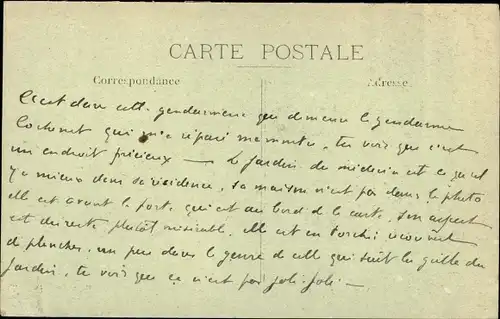 CARTE POSTALE
Correspondance
Adresse
C'est dans cette gendarmerie que demeure le gendarme
qui m'a réparé ma montre, tu vois que c'est
un endroit précieux — Le jardin du médecin est ce qu'il
y a mieux dans sa résidence, sa maison n'est pas dans la photo
elle est avant le fort, qui est au bord de la carte. Son aspect
est du reste plutôt misérable. Elle est en torchis recouvert
de planches, un peu dans le genre de celle qui suit la grille du
jardin, tu vois que ce n'est pas joli-joli —